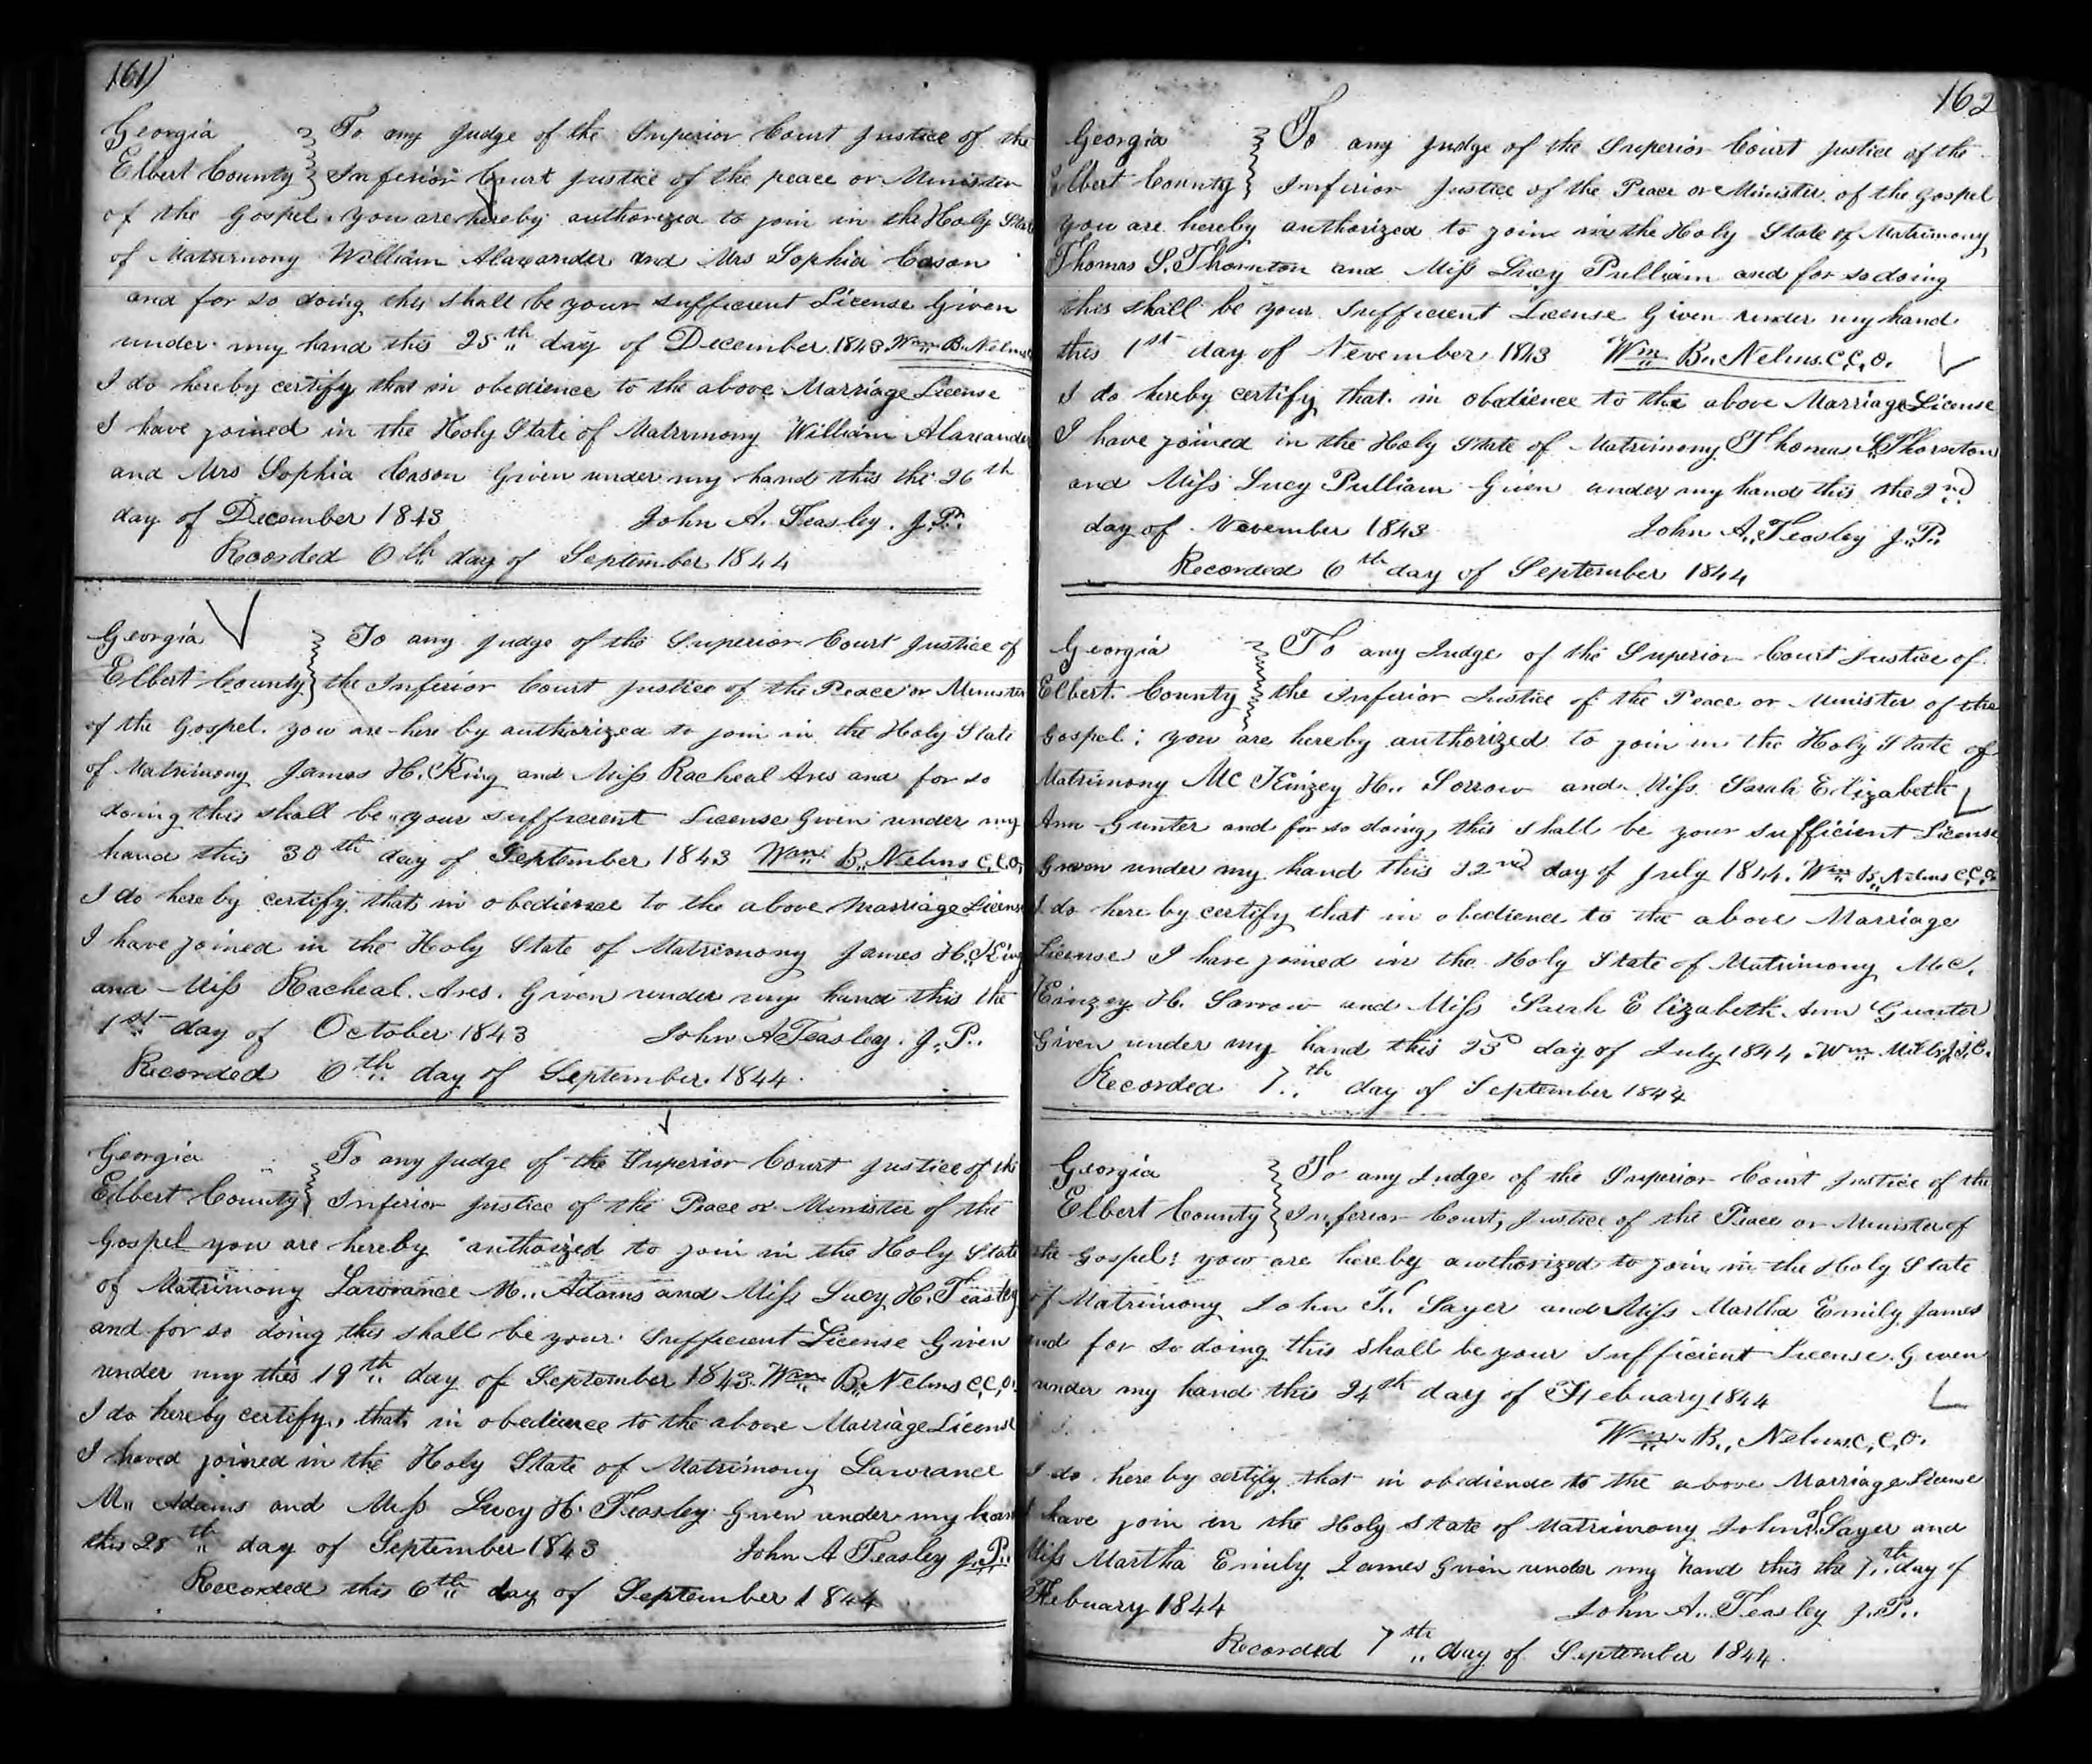 161)
Georgia To any Judge of the Superior Court Justice of the
Elbert County Inferior Court Justice of the peace or Minister
of the Gospel. You are hereby authorized to join in the Holy State
of Matrimony William Alaxander and Mrs Sophia Cason
and for so doing this shall be your sufficient License Given
under my hand this 25th day of December 1843 Wm B. Nelms
I do hereby certify that in obedience to the above Marriage License
I have joined in the Holy State of Matrimony William Alaxander
and Mrs Sophia Cason Given under my hand this the 26th
day of December 1843 John A. Teasley. J.P.
Recorded 6th day of September 1844
Georgia To any Judge of the Superior Court Justice of
Elbert County the Inferior Court Justice of the Peace or Minister
of the Gospel. you are here by authorized to join in the Holy State
of Matrimony James H. King and Miss Racheal Ares and for so
doing this shall be your sufficient License Given under my
hand this 30th day of September 1843 Wm B. Nelms C.C.O.
I do here by certify that in obedience to the above Marriage License
I have joined in the Holy State of Matrimony James H. King
and Miss Racheal. Ares. Given under my hand this the
1st day of October 1843 John A Teasley. J.P.
Recorded 6th day of September. 1844.
Georgia To any Judge of the Superior Court Justice of the
Elbert County Inferior Justice of the Peace or Minister of the
Gospel you are hereby authoized to join in the Holy State
of Matrimony Lawrance M. Adams and Miss Lucy H. Teasley
and for so doing this shall be your sufficient License Given
under my this 19th day of September 1843. Wm B. Nelms C.C.O.
I do here by certify, that, in obedience to the above Marriage License
I haved joined in the Holy State of Matrimony Lawrance
M. Adams and Miss Lucy H. Teasley Given under my hand
this 28th day of September 1843 John A Teasley J.P.
Recorded this 6th day of September 1844
162
Georgia To any Judge of the Superior Court Justice of the
Elbert County Inferior Justice of the Peace or Minister of the Gospel
you are hereby authorized to join in the Holy State of Matrimony
Thomas S. Thornton and Miss Lucy Pulliam and for so doing
this shall be your sufficient License Given under my hand
this 1st day of November 1843 Wm B. Nelms C.C.O.
I do hereby certify that in obedience to the above Marriage License
I have joined in the Holy State of Matrimony Thomas S. Thornton
and Miss Lucy Pulliam Given under my hand this the 2nd
day of November 1843 John A. Teasley J.P.
Recorded 6th day of September 1844
Georgia To any Judge of the Superior Court Justice of
Elbert County the Inferior Justice of the Peace or Minister of the
Gospel: you are hereby authorized to join in the Holy State of
Matrimony Mc Kinzey H. Sorrow and Miss Sarah Elizabeth
Ann Gunter and for so doing, this shall be your sufficient License
Given under my hand this 22nd day of July 1844. Wm B. Nelms C.C.O.
I do here by certify that in obedience to the above Marriage
License I have joined in the Holy State of Matrimony Mc.
Kinzey H. Sorrow and Miss Sarah Elizabeth Ann Gunter
Given under my hand this 23d day of July 1844. Wm Mills J.I.C.
Recorded 7th day of September 1844
Georgia To any Judge of the Superior Court Justice of the
Elbert County Inferior Court, Justice of the Peace or Minister of
the Gospel: you are hereby authorized to join in the Holy State
of Matrimony John T. Sayer and Miss Martha Emily James
and for so doing this shall be your sufficient License. Given
under my hand this 24th day of Febuary 1844
Wm B. Nelms C.C.O.
I do here by certify that in obedience to the above Marriage License
I have join in the Holy State of Matrimony John T. Sayer and
Miss Martha Emily James Given under my hand this the 7th day of
Febuary 1844 John A. Teasley J.P.
Recorded 7th day of September 1844.